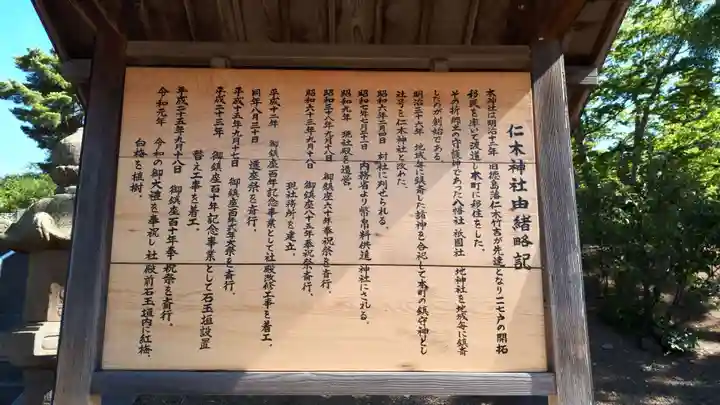 仁木神社由緒略記
本神社は明治十二年 旧徳島藩仁木竹吉が先達となり一一七戸の開拓
移民を率いて渡道し本町に移住をした。
その折郷土の守護神であった八幡社 祇園社 地神社を地域毎に鎮斎
したのが創始である
明治三十六年 地域毎に鎮斎した諸神を合祀して本町の鎮守神とし
社号を仁木神社と改めた。
昭和六年三月四日 村社に列せられる。
昭和七年七月十一日 内務省より幣帛料供進神社にされる。
昭和九年 現社殿を造営。
昭和三十八年九月十八日 御鎮座八十年奉祝祭を斎行。
昭和六十三年九月十八日 御鎮座八十五年奉祝祭斎行、
現社務所を建立。
平成十二年 御鎮座百年記念事業として社殿改修工事を着工。
同年八月三十日 遷座祭を斎行。
平成十五年九月十七日 御鎮座百年式年大祭を斎行。
平成二十三年 御鎮座百十年記念事業として石玉垣設置
替え工事を着工。
平成二十五年九月十八日 御鎮座百十年奉祝祭を斎行。
令和元年 令和の御大禮を奉祝し社殿前石玉垣内に紅梅、
白梅を植樹